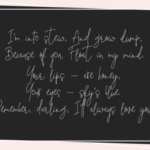 I'm into stew, And grow dump,
Because of you, Float in my mind.
Your lips – are honey,
Your eyes – sky's blue.
Remember, darling, I'll always love you